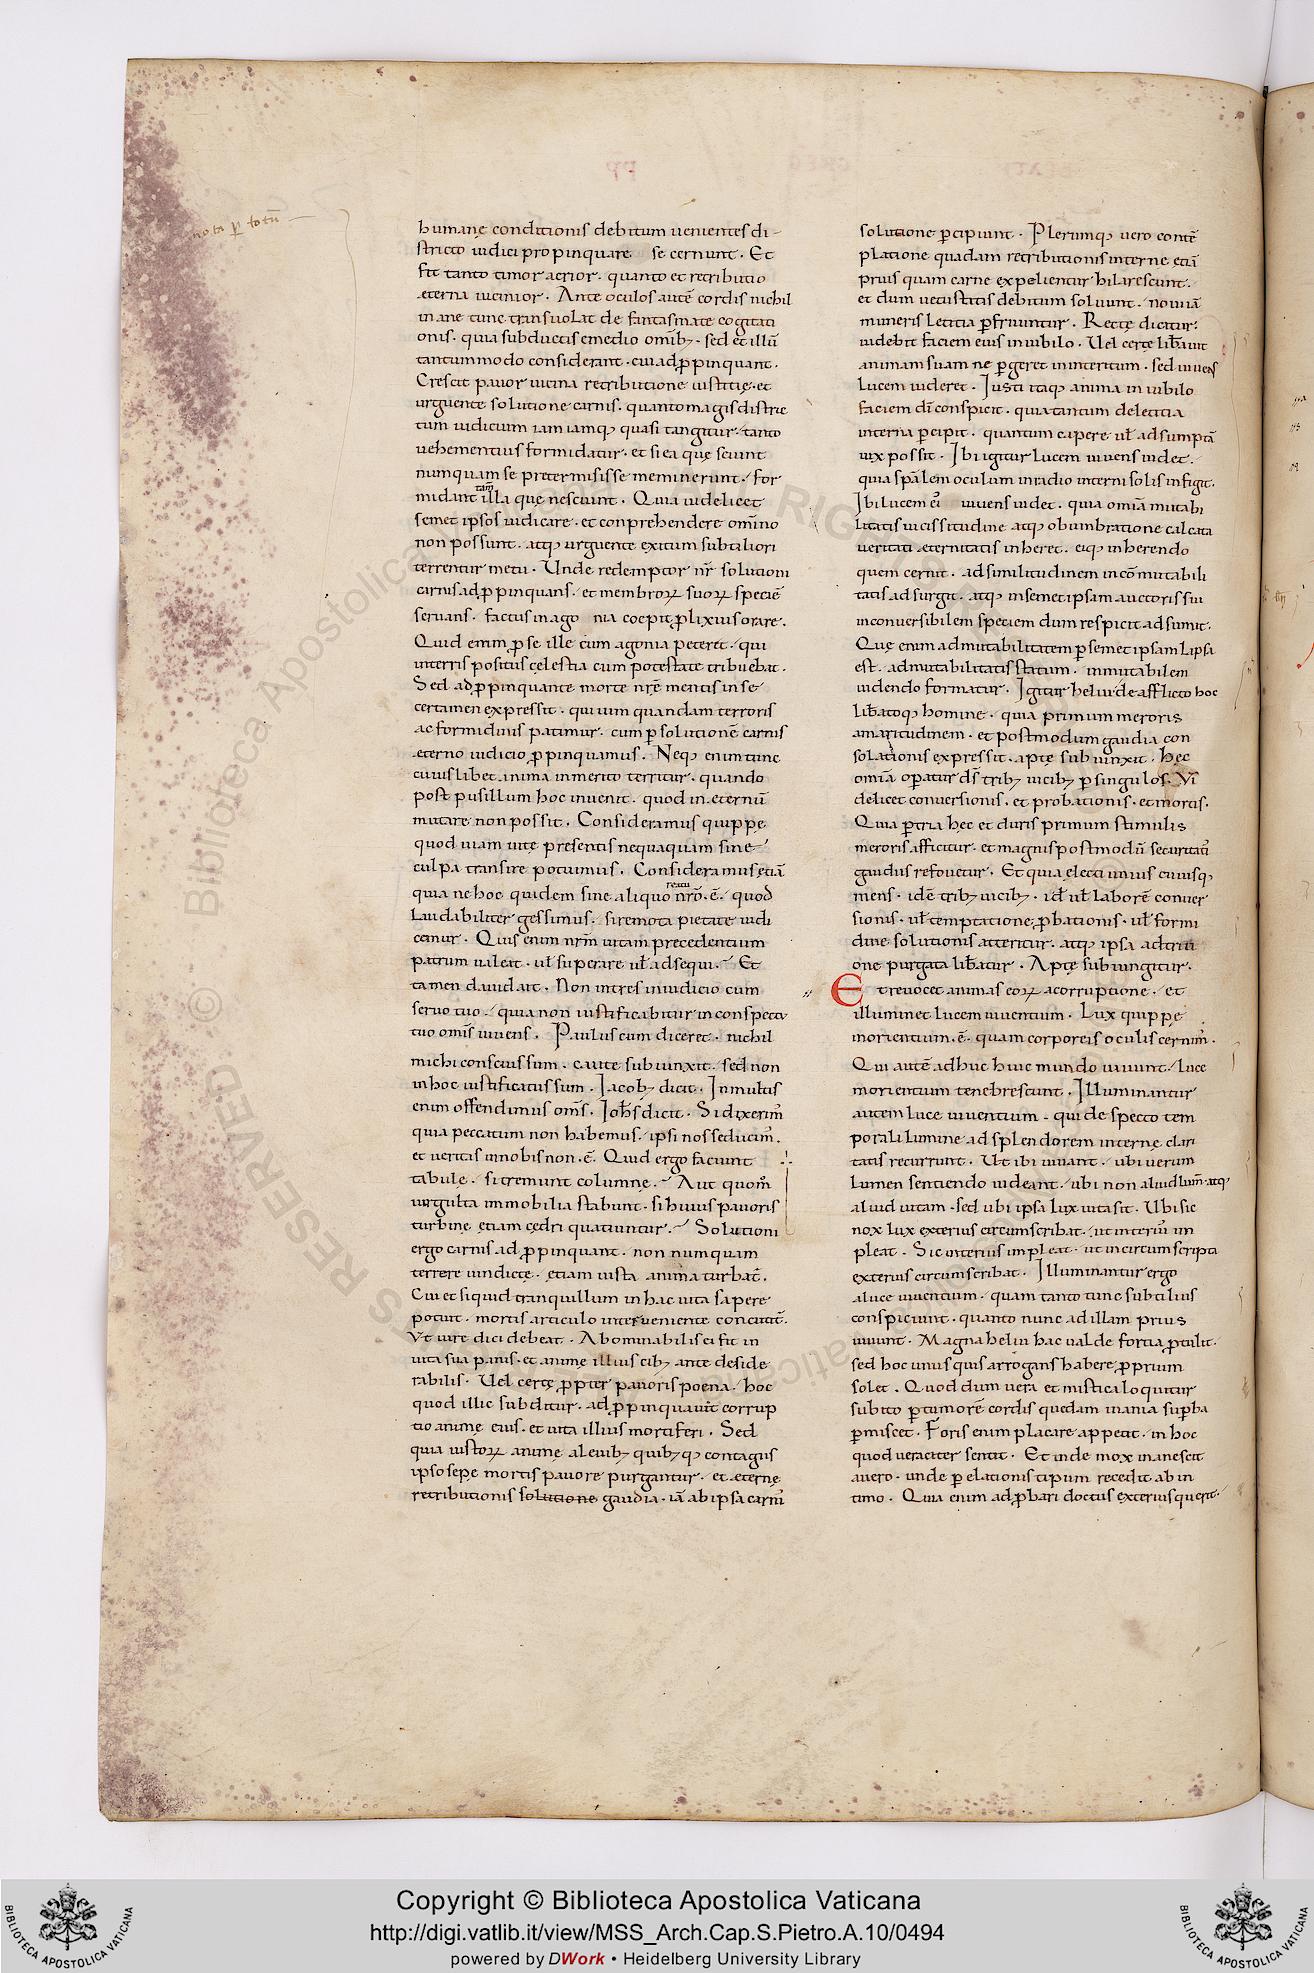 nota p̄ totū
humanę conditionis debitum uenientes di-
stricto iudici propinquare se cernunt. Et
fit tanto timor acrior. quanto et retributio
ęterna uicinior. Ante oculos autē cordis nichil
inane tunc transuolat de fantasmate cogitati
onis. quia subductis emedio omībꝫ. sed et illū
tantummodo considerant. cui adp̱pinquant.
Crescit pauor uicina retributione iustitię. et
urguente solutione carnis. quanto magis distric
tum iudicium iam iamqꝫ quasi tangitur. tanto
uehementius formidatur. et si ea quę sciunt
nunquam se pretermisisse meminerunt. for
midant tam̄ illa quę nesciunt. Quia uidelicet
semet ipsos iudicare. et conprehendere omīno
non possunt. atqꝫ urguente exitum subtiliori
terrentur metu. Unde redemptor nr̄ solutioni
carnis adp̱pinquans. et membroꝝ suoꝝ speciē
seruans. factus in ago nia coepit p̱lixius orare.
Quid enim p̱ se ille cum agonia peteret. qui
interris positus cęlestia cum potestate tribuebat.
Sed adp̱pinquante morte nr̄ę mentis in se
certamen expressit. qui uim quandam terroris
ac formidinis patimur. cum p̱ solutionē carnis
ęterno iudicio p̱pinquamus. Neqꝫ enim tunc
cuiuslibet anima inmerito territur. quando
post pusillum hoc inuenit. quod in ęternū
mutare non possit. Consideramus quippe
quod uiam uitę presentis nequaquam sine
culpa transire potuimus. Consideramus ętiā
quia ne hoc quidem sine aliquo reatu nr̄o. ē. quod
laudabiliter gessimus. si remota pietate iudi
camur. Quis enim nr̄m uitam precedentium
patrum ualeat. ul̄ superare ul̄ adsequi. Et
tamen dauid ait. Non intres in iudicio cum
seruo tuo. quia non iustificabitur in conspectu
tuo omīs uiuens. Paulus cum diceret. nichil
michi conscius sum. caute subiunxit. sed non
in hoc iustificatus sum. Iacobꝫ dicit. In multis
enim offendimus om̄s. Ioh̄s dicit. Si dixerim̄
quia peccatum non habemus. ipsi nos seducim̄.
et ueritas in nobis non. ē. Quid ergo faciunt
tabulę. si tremunt columnę. Aut quom̄
uirgulta immobilia stabunt. si huius pauoris
turbine ętiam cędri quatiuntur. Solutioni
ergo carnis adp̱pinquant. non numquam
terrere uindictę. ętiam iusta anima turbat̄.
Cui et si quid tranquillum in hac uita sapere
potuit. mortis articulo interueniente concutit̄.
Ut iure dici debeat. Abominabilis ei fit in
uita sua panis. et animę illius cibꝫ ante deside
rabilis. Uel certę p̱pter pauoris poena. hoc
quod illic subditur. adp̱pinquauit corrup
tio animę eius. et uita illius mortiferi. Sed
quia iustoꝝ animę a leuibꝫ quibꝫqꝫ contagiis
ipso sępe mortis pauore purgantur. et ęternę
retributionis solutione gaudia. iā ab ipsa carnis̄
solutione p̱cipiunt. Plerumqꝫ uero contē
platione quadam retributionis internę. etiā
prius quam carne expolientur hilarescunt.
et dum uetustatis debitum soluunt. noui iā
muneris letitia p̱fruuntur. Rectę dicitur.
uidebit faciem eius in iubilo. Uel certę lib̄auit
animam suam ne p̱geret in interitum. sed uiuens
lucem uideret. Iusti itaqꝫ anima in iubilo
faciem dī conspicit. quia tantum de letitia
interna p̱cipit. quantum capere ul̄ adsumptā
uix possit. Ibi igitur lucem uiuens uidet.
quia spālem oculum in radio interni solis infigit.
Ibi lucem ei̅ uiuens uidet. quia omīa mutabi
litatis uicissitudine atqꝫ obumbratione calcata
ueritati ęternitatis inheret. eiqꝫ inherendo
quem cernit. ad similitudinem incōmutabili
tatis adsurgit. atqꝫ insemet ipsam auctoris sui
inconuersibilem speciem dum respicit adsumit.
Quę enim ad mutabilitatem p̱ semet ipsam lapsa
est. ad mutabilitatis statum. inmutabilem
uidendo formatur. Igitur heliu de afflicto hoc
lib̄atoqꝫ homine. quia primum meroris
amaritudinem. et postmodum gaudia con
solationis expressit. aptę subiunxit. hęc
omīa op̱atur dſ̄ tribꝫ uicibꝫ p̱ singulos. Vi
delicet conuersionis. et probationis. et mortis.
Quia p̱ tria hęc et duris primum stimulis
meroris afficitur. et magnis postmodū securitatī
gaudiis refouetur. Et quia electi unius cuiusqꝫ
mens. idē tribꝫ uicibꝫ. id̄ ul̄ laborē conuer
sionis. ul̄ temptatione p̱bationis. ul̄ formi
dine solutionis atteritur. atqꝫ ipsa adtriti
one purgata lib̄atur. Aptę subiungitur.
Et reuocet animas eoꝝ a corruptione. et
illuminet lucem uiuentium. Lux quippe
morientium. ē. quam corporeis oculis cernim̄.
Qui autē adhuc huic mundo uiuunt. luce
morientium tenebrescunt. Illuminantur
autem luce uiuentium. qui despecto tem
porali lumine ad splendorem internę clari
tatis recurrunt. Ut ibi uiuant. ubi uerum
lumen sentiendo uideant. ubi non aliud lum̄. atqꝫ
aliud uitam. sed ubi ipsa lux uita sit. Ubi sic
nox lux exterius circumscribat. ut interiū im
pleat. Sic interius impleat. ut incircumscripta
exterius circumscribat. Illuminantur ergo
a luce uiuentium. quam tanto tunc subtilius
conspiciunt. quanto nunc ad illam prius
uiuunt. Magna heliu hac ualde fortia p̱tulit.
sed hoc unus quis arrogans habere p̱prium
solet. Quod dum uera et mistica loquitur
subito p̱ tumorē cordis quedam inania sup̱ba
p̱miscet. Foris enim placare appetit. in hoc
quod ueraciter sentit. Et inde mox inanescit
a uero. unde p̱ elationis tipum recedit ab in
timo. Quia enim adp̱bari doctus exterius querit.
Copyright © Biblioteca Apostolica Vaticana
http://digi.vatlib.it/view/MSS_Arch.Cap.S.Pietro.A.10/0494
powered by DWork • Heidelberg University Library